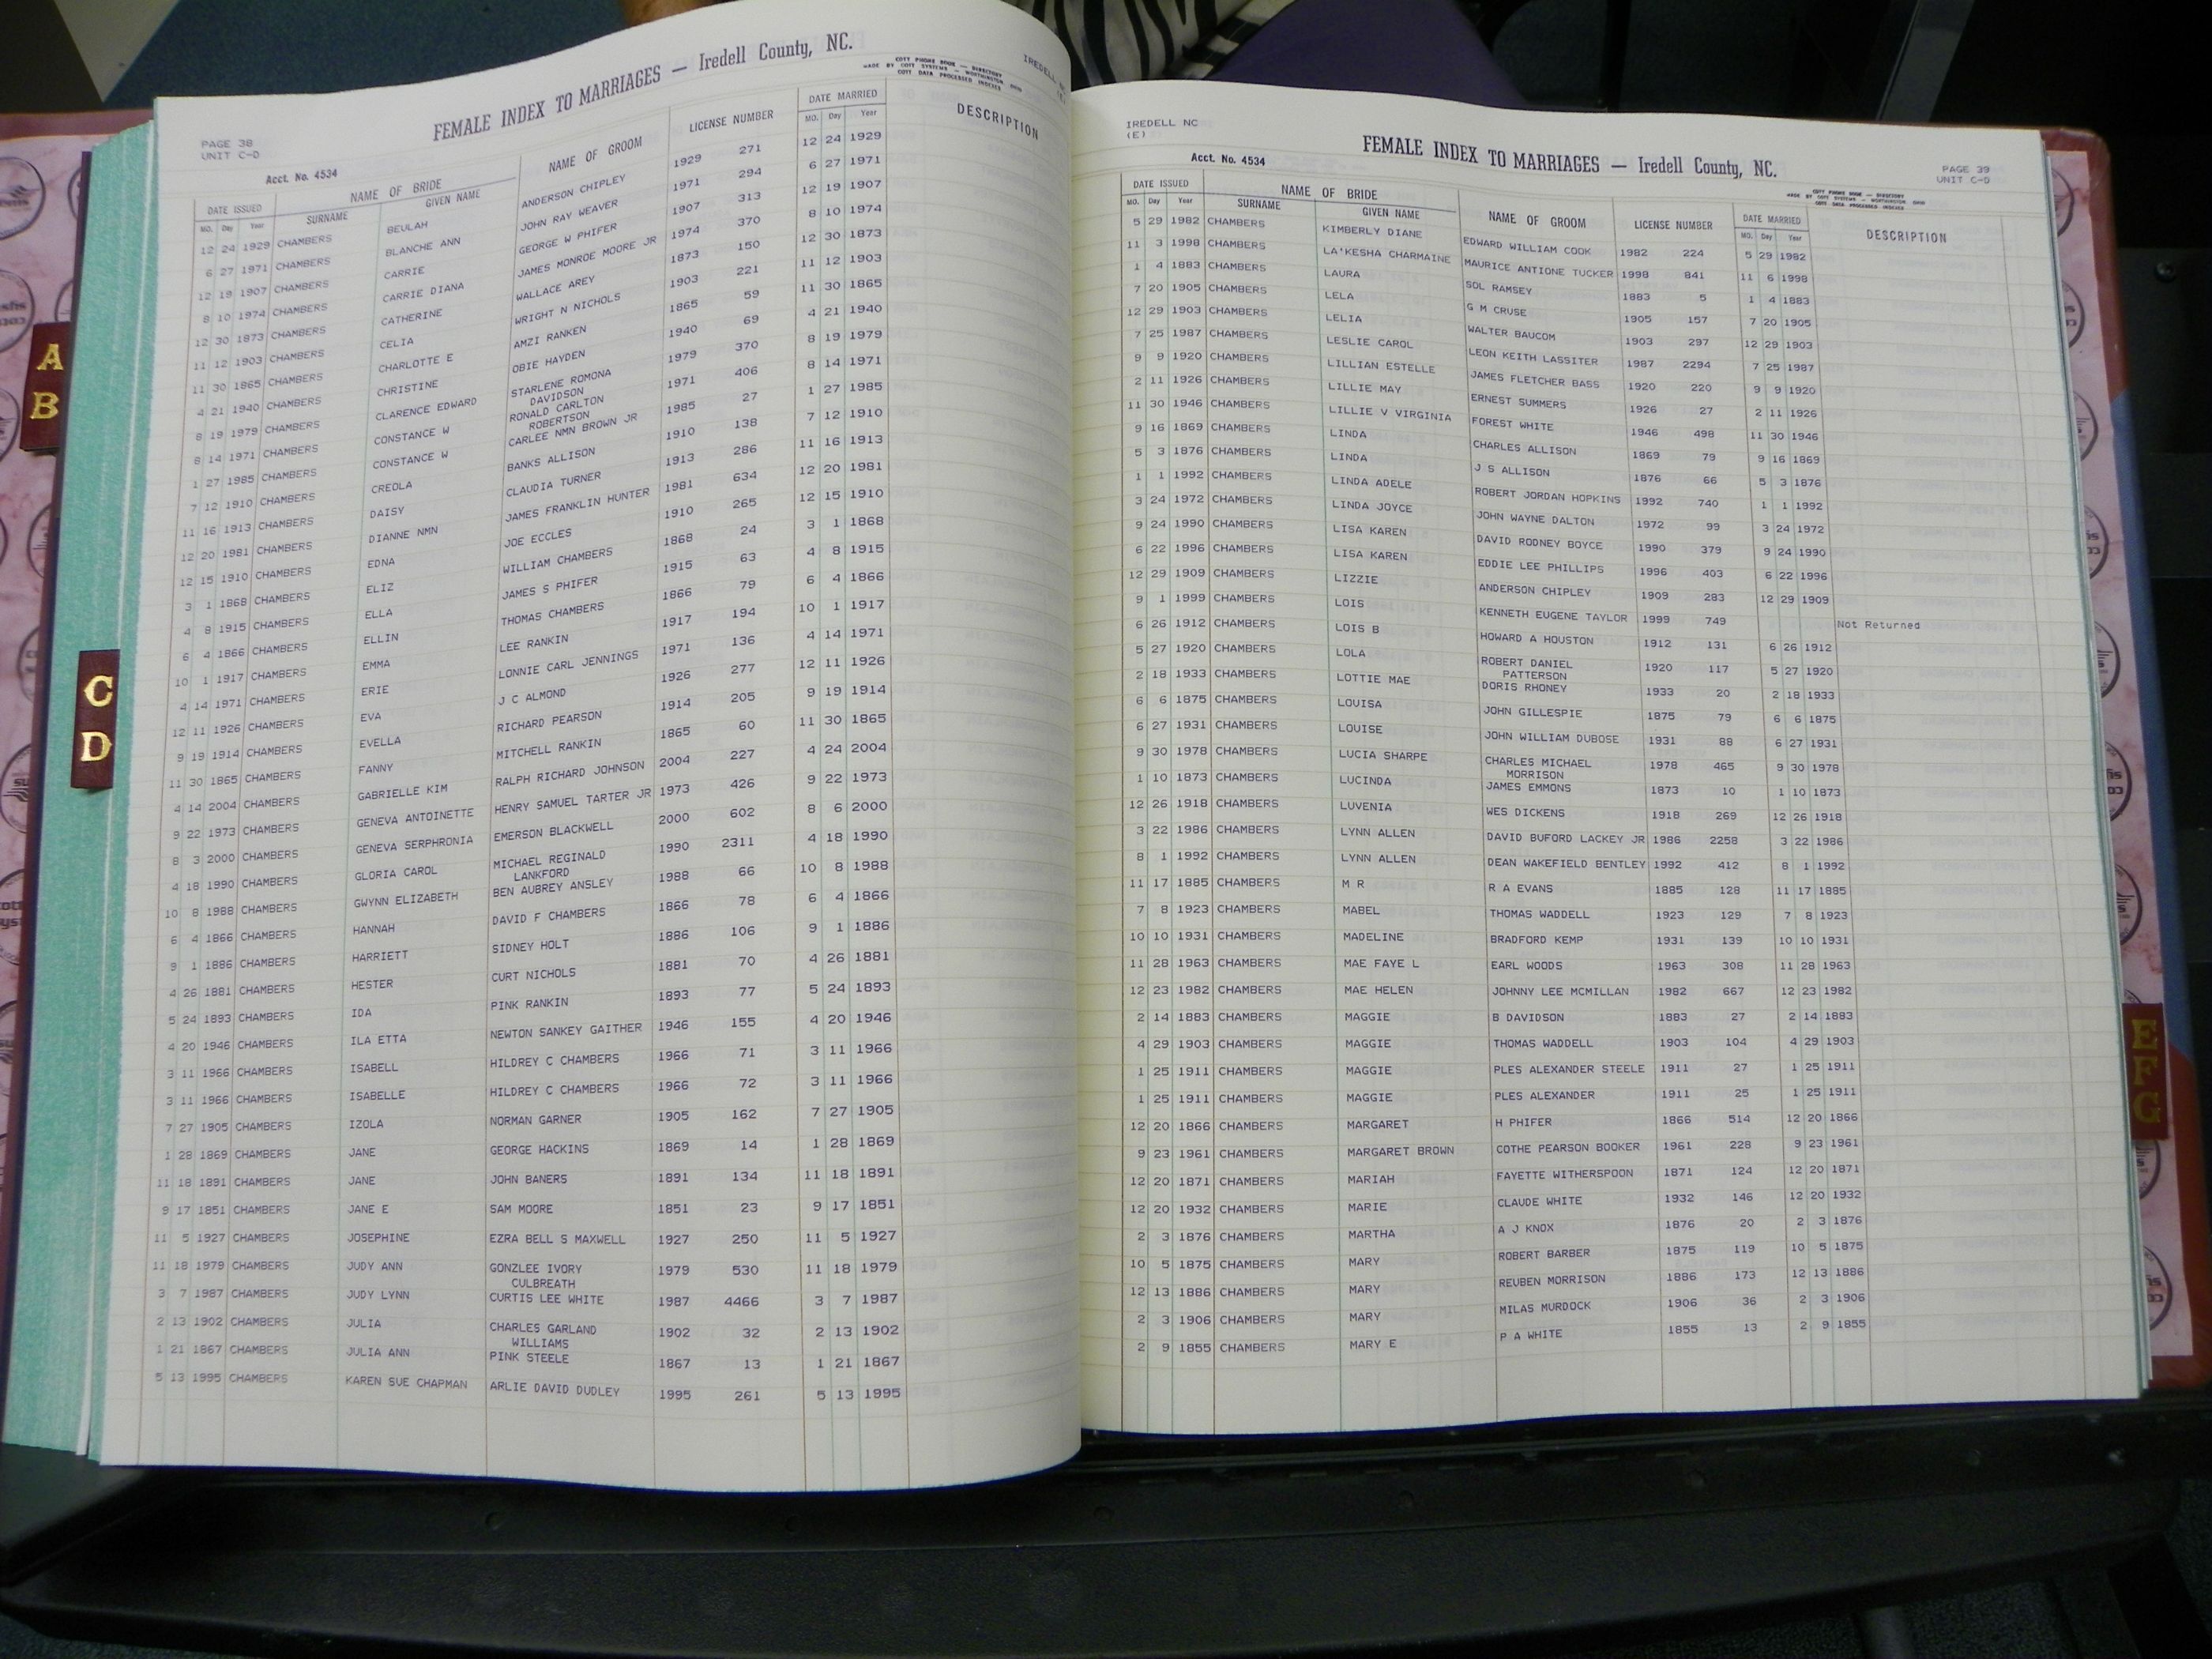 FEMALE INDEX TO MARRIAGES — Iredell County, NC.
COTT PHONE BOOK — DIRECTORY
MADE BY COTT SYSTEMS — WORTHINGTON OHIO
COTT DATA PROCESSED INDEXES
PAGE 38
UNIT C-D
Acct. No. 4534
DATE ISSUED NAME OF BRIDE NAME OF GROOM LICENSE NUMBER DATE MARRIED DESCRIPTION
MO. Day Year SURNAME GIVEN NAME MO. Day Year
12 24 1929 CHAMBERS BEULAH ANDERSON CHIPLEY 1929 271 12 24 1929
6 27 1971 CHAMBERS BLANCHE ANN JOHN RAY WEAVER 1971 294 6 27 1971
12 19 1907 CHAMBERS CARRIE GEORGE W PHIFER 1907 313 12 19 1907
8 10 1974 CHAMBERS CARRIE DIANA JAMES MONROE MOORE JR 1974 370 8 10 1974
12 30 1873 CHAMBERS CATHERINE WALLACE AREY 1873 150 12 30 1873
11 12 1903 CHAMBERS CELIA WRIGHT N NICHOLS 1903 221 11 12 1903
11 30 1865 CHAMBERS CHARLOTTE E AMZI RANKEN 1865 59 11 30 1865
4 21 1940 CHAMBERS CHRISTINE OBIE HAYDEN 1940 69 4 21 1940
8 19 1979 CHAMBERS CLARENCE EDWARD STARLENE ROMONA 1979 370 8 19 1979
DAVIDSON
8 14 1971 CHAMBERS CONSTANCE W RONALD CARLTON 1971 406 8 14 1971
ROBERTSON
1 27 1985 CHAMBERS CONSTANCE W CARLEE NMN BROWN JR 1985 27 1 27 1985
7 12 1910 CHAMBERS CREOLA BANKS ALLISON 1910 138 7 12 1910
11 16 1913 CHAMBERS DAISY CLAUDIA TURNER 1913 286 11 16 1913
12 20 1981 CHAMBERS DIANNE NMN JAMES FRANKLIN HUNTER 1981 634 12 20 1981
12 15 1910 CHAMBERS EDNA JOE ECCLES 1910 265 12 15 1910
3 1 1868 CHAMBERS ELIZ WILLIAM CHAMBERS 1868 24 3 1 1868
4 8 1915 CHAMBERS ELLA JAMES S PHIFER 1915 63 4 8 1915
6 4 1866 CHAMBERS ELLIN THOMAS CHAMBERS 1866 79 6 4 1866
10 1 1917 CHAMBERS EMMA LEE RANKIN 1917 194 10 1 1917
4 14 1971 CHAMBERS ERIE LONNIE CARL JENNINGS 1971 136 4 14 1971
12 11 1926 CHAMBERS EVA J C ALMOND 1926 277 12 11 1926
9 19 1914 CHAMBERS EVELLA RICHARD PEARSON 1914 205 9 19 1914
11 30 1865 CHAMBERS FANNY MITCHELL RANKIN 1865 60 11 30 1865
4 14 2004 CHAMBERS GABRIELLE KIM RALPH RICHARD JOHNSON 2004 227 4 24 2004
9 22 1973 CHAMBERS GENEVA ANTOINETTE HENRY SAMUEL TARTER JR 1973 426 9 22 1973
8 3 2000 CHAMBERS GENEVA SERPHRONIA EMERSON BLACKWELL 2000 602 8 6 2000
4 18 1990 CHAMBERS GLORIA CAROL MICHAEL REGINALD 1990 2311 4 18 1990
LANKFORD
10 8 1988 CHAMBERS GWYNN ELIZABETH BEN AUBREY ANSLEY 1988 66 10 8 1988
6 4 1866 CHAMBERS HANNAH DAVID F CHAMBERS 1866 78 6 4 1866
9 1 1886 CHAMBERS HARRIETT SIDNEY HOLT 1886 106 9 1 1886
4 26 1881 CHAMBERS HESTER CURT NICHOLS 1881 70 4 26 1881
5 24 1893 CHAMBERS IDA PINK RANKIN 1893 77 5 24 1893
4 20 1946 CHAMBERS ILA ETTA NEWTON SANKEY GAITHER 1946 155 4 20 1946
3 11 1966 CHAMBERS ISABELL HILDREY C CHAMBERS 1966 71 3 11 1966
3 11 1966 CHAMBERS ISABELLE HILDREY C CHAMBERS 1966 72 3 11 1966
7 27 1905 CHAMBERS IZOLA NORMAN GARNER 1905 162 7 27 1905
1 28 1869 CHAMBERS JANE GEORGE HACKINS 1869 14 1 28 1869
11 18 1891 CHAMBERS JANE JOHN BANERS 1891 134 11 18 1891
9 17 1851 CHAMBERS JANE E SAM MOORE 1851 23 9 17 1851
11 5 1927 CHAMBERS JOSEPHINE EZRA BELL S MAXWELL 1927 250 11 5 1927
11 18 1979 CHAMBERS JUDY ANN GONZLEE IVORY 1979 530 11 18 1979
CULBREATH
3 7 1987 CHAMBERS JUDY LYNN CURTIS LEE WHITE 1987 4466 3 7 1987
2 13 1902 CHAMBERS JULIA CHARLES GARLAND 1902 32 2 13 1902
WILLIAMS
1 21 1867 CHAMBERS JULIA ANN PINK STEELE 1867 13 1 21 1867
5 13 1995 CHAMBERS KAREN SUE CHAPMAN ARLIE DAVID DUDLEY 1995 261 5 13 1995
IREDELL NC
(E)
Acct. No. 4534
FEMALE INDEX TO MARRIAGES — Iredell County, NC.
PAGE 39
UNIT C-D
COTT PHONE BOOK — DIRECTORY
MADE BY COTT SYSTEMS — WORTHINGTON OHIO
COTT DATA PROCESSED INDEXES
DATE ISSUED NAME OF BRIDE NAME OF GROOM LICENSE NUMBER DATE MARRIED DESCRIPTION
MO. Day Year SURNAME GIVEN NAME MO. Day Year
5 29 1982 CHAMBERS KIMBERLY DIANE EDWARD WILLIAM COOK 1982 224 5 29 1982
11 3 1998 CHAMBERS LA'KESHA CHARMAINE MAURICE ANTIONE TUCKER 1998 841 11 6 1998
1 4 1883 CHAMBERS LAURA SOL RAMSEY 1883 5 1 4 1883
7 20 1905 CHAMBERS LELA G M CRUSE 1905 157 7 20 1905
12 29 1903 CHAMBERS LELIA WALTER BAUCOM 1903 297 12 29 1903
7 25 1987 CHAMBERS LESLIE CAROL LEON KEITH LASSITER 1987 2294 7 25 1987
9 9 1920 CHAMBERS LILLIAN ESTELLE JAMES FLETCHER BASS 1920 220 9 9 1920
2 11 1926 CHAMBERS LILLIE MAY ERNEST SUMMERS 1926 27 2 11 1926
11 30 1946 CHAMBERS LILLIE V VIRGINIA FOREST WHITE 1946 498 11 30 1946
9 16 1869 CHAMBERS LINDA CHARLES ALLISON 1869 79 9 16 1869
5 3 1876 CHAMBERS LINDA J S ALLISON 1876 66 5 3 1876
1 1 1992 CHAMBERS LINDA ADELE ROBERT JORDAN HOPKINS 1992 740 1 1 1992
3 24 1972 CHAMBERS LINDA JOYCE JOHN WAYNE DALTON 1972 99 3 24 1972
9 24 1990 CHAMBERS LISA KAREN DAVID RODNEY BOYCE 1990 379 9 24 1990
6 22 1996 CHAMBERS LISA KAREN EDDIE LEE PHILLIPS 1996 403 6 22 1996
12 29 1909 CHAMBERS LIZZIE ANDERSON CHIPLEY 1909 283 12 29 1909
9 1 1999 CHAMBERS LOIS KENNETH EUGENE TAYLOR 1999 749 Not Returned
6 26 1912 CHAMBERS LOIS B HOWARD A HOUSTON 1912 131 6 26 1912
5 27 1920 CHAMBERS LOLA ROBERT DANIEL 1920 117 5 27 1920
PATTERSON
2 18 1933 CHAMBERS LOTTIE MAE DORIS RHONEY 1933 20 2 18 1933
6 6 1875 CHAMBERS LOUISA JOHN GILLESPIE 1875 79 6 6 1875
6 27 1931 CHAMBERS LOUISE JOHN WILLIAM DUBOSE 1931 88 6 27 1931
9 30 1978 CHAMBERS LUCIA SHARPE CHARLES MICHAEL 1978 465 9 30 1978
MORRISON
1 10 1873 CHAMBERS LUCINDA JAMES EMMONS 1873 10 1 10 1873
12 26 1918 CHAMBERS LUVENIA WES DICKENS 1918 269 12 26 1918
3 22 1986 CHAMBERS LYNN ALLEN DAVID BUFORD LACKEY JR 1986 2258 3 22 1986
8 1 1992 CHAMBERS LYNN ALLEN DEAN WAKEFIELD BENTLEY 1992 412 8 1 1992
11 17 1885 CHAMBERS M R R A EVANS 1885 128 11 17 1885
7 8 1923 CHAMBERS MABEL THOMAS WADDELL 1923 129 7 8 1923
10 10 1931 CHAMBERS MADELINE BRADFORD KEMP 1931 139 10 10 1931
11 28 1963 CHAMBERS MAE FAYE L EARL WOODS 1963 308 11 28 1963
12 23 1982 CHAMBERS MAE HELEN JOHNNY LEE MCMILLAN 1982 667 12 23 1982
2 14 1883 CHAMBERS MAGGIE B DAVIDSON 1883 27 2 14 1883
4 29 1903 CHAMBERS MAGGIE THOMAS WADDELL 1903 104 4 29 1903
1 25 1911 CHAMBERS MAGGIE PLES ALEXANDER STEELE 1911 27 1 25 1911
1 25 1911 CHAMBERS MAGGIE PLES ALEXANDER 1911 25 1 25 1911
12 20 1866 CHAMBERS MARGARET H PHIFER 1866 514 12 20 1866
9 23 1961 CHAMBERS MARGARET BROWN COTHE PEARSON BOOKER 1961 228 9 23 1961
12 20 1871 CHAMBERS MARIAH FAYETTE WITHERSPOON 1871 124 12 20 1871
12 20 1932 CHAMBERS MARIE CLAUDE WHITE 1932 146 12 20 1932
2 3 1876 CHAMBERS MARTHA A J KNOX 1876 20 2 3 1876
10 5 1875 CHAMBERS MARY ROBERT BARBER 1875 119 10 5 1875
12 13 1886 CHAMBERS MARY REUBEN MORRISON 1886 173 12 13 1886
2 3 1906 CHAMBERS MARY MILAS MURDOCK 1906 36 2 3 1906
2 9 1855 CHAMBERS MARY E P A WHITE 1855 13 2 9 1855
A
B
C
D
E
F
G